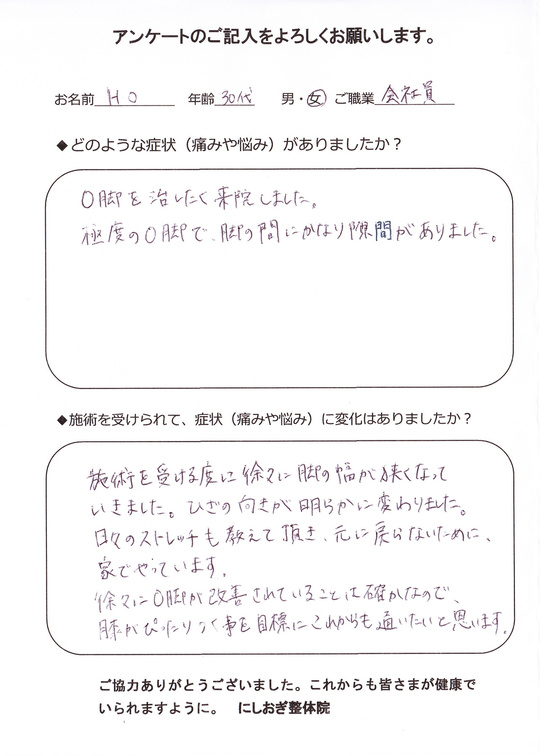 アンケートのご記入をよろしくお願いします。
お名前 H O 年齢 30代 男・女 ご職業 会社員
◆どのような症状（痛みや悩み）がありましたか？
O脚を治したく来院しました。
極度のO脚で、脚の間にかなり隙間がありました。
◆施術を受けられて、症状（痛みや悩み）に変化はありましたか？
施術を受ける度に徐々に脚の幅が狭くなって
いきました。ひざの向きが明らかに変わりました。
日々のストレッチも教えて頂き、元に戻らないために、
家でやっています。
徐々にO脚が改善されていることは確かなので、
膝がぴったりつく事を目標にこれからも通いたいと思います。
ご協力ありがとうございました。これからも皆さまが健康で
いられますように。 にしおぎ整体院